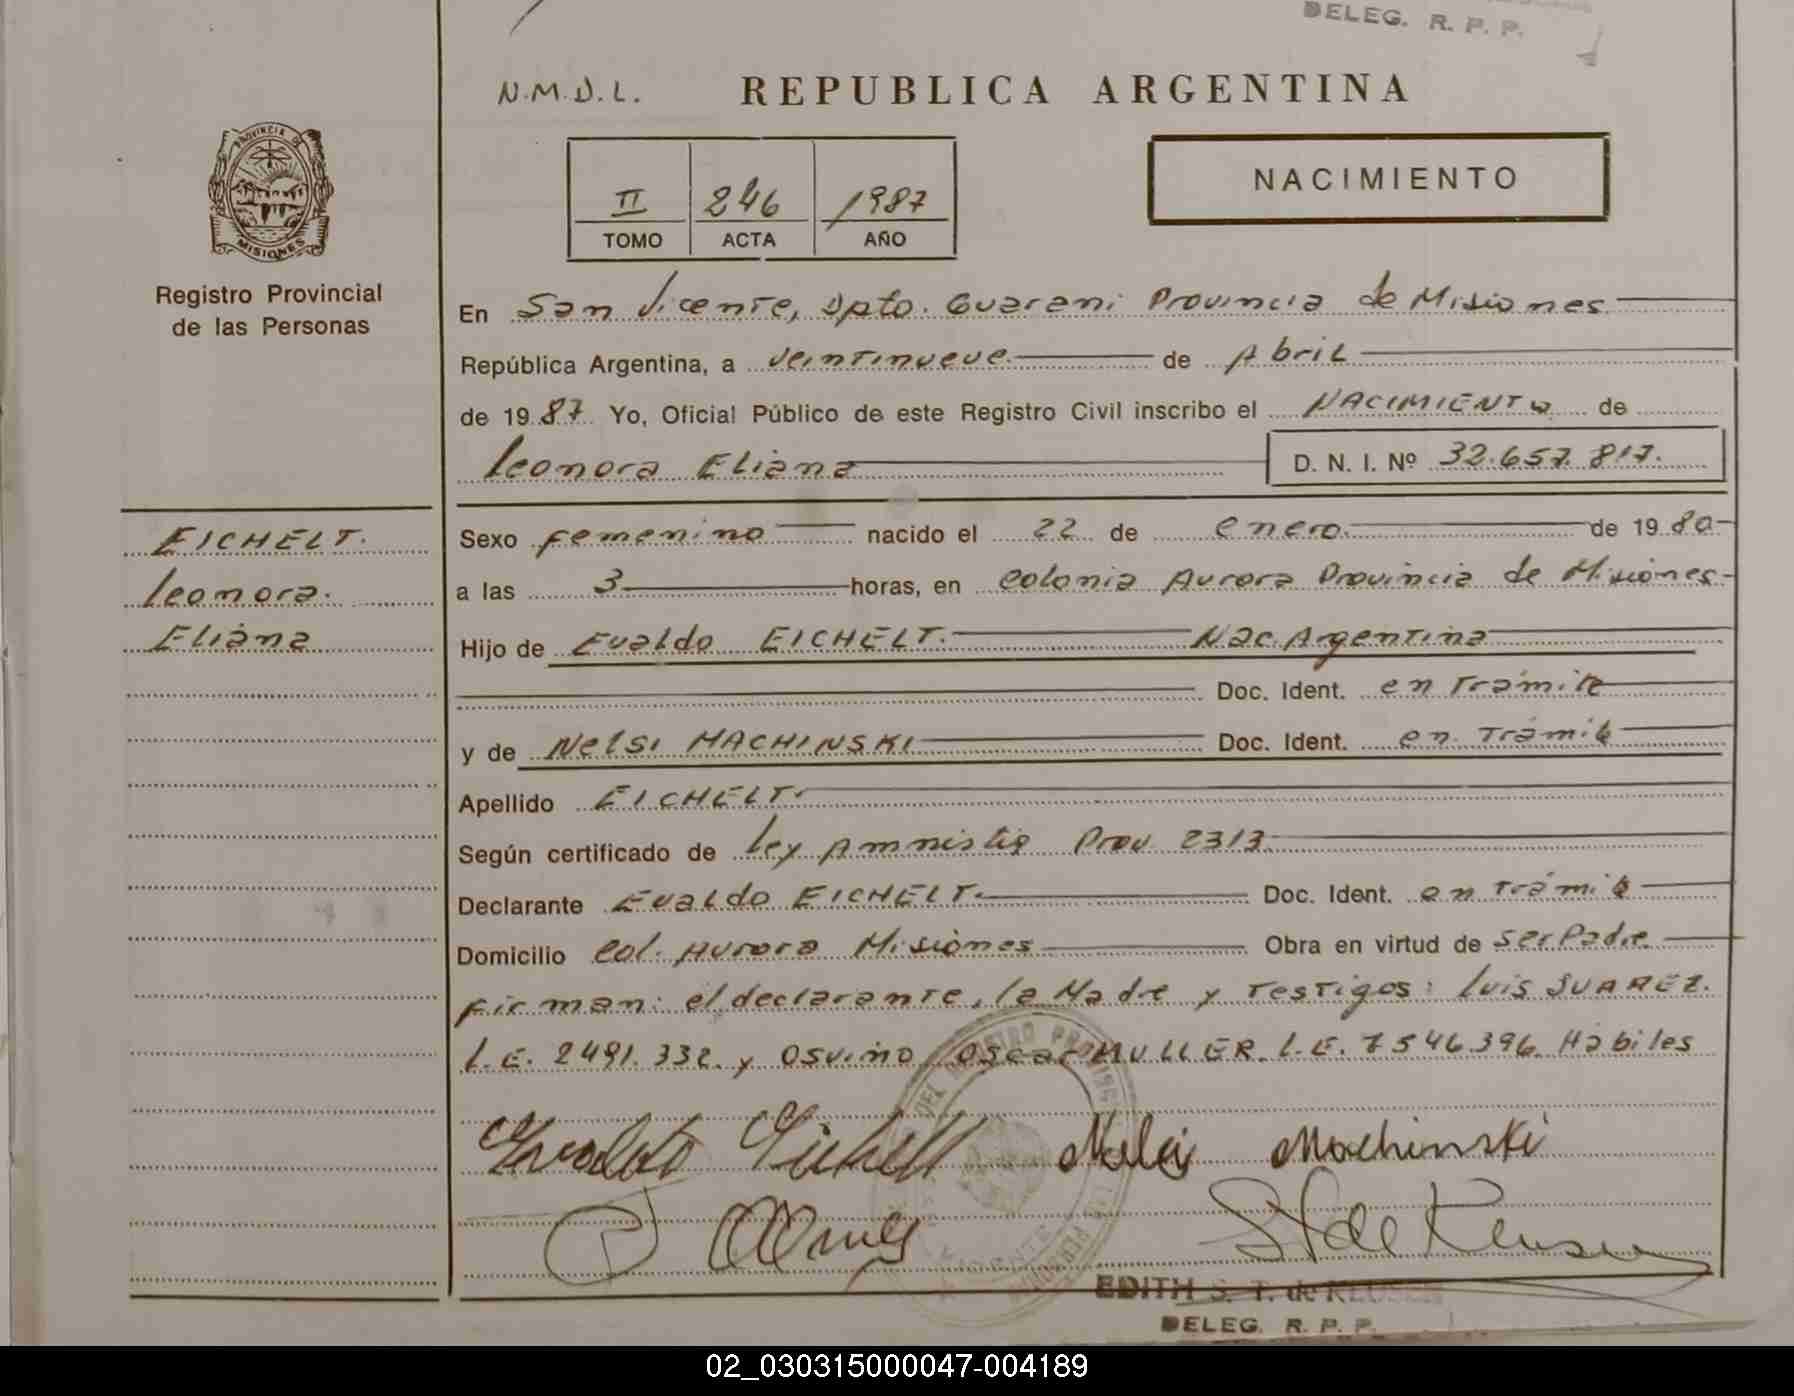 DELEG. R. P. P.
N.M.D.L.
REPUBLICA ARGENTINA
PROVINCIA DE
MISIONES
Registro Provincial
de las Personas
II 246 1987
TOMO ACTA AÑO
NACIMIENTO
En San Vicente, Dpto. Guarani Provincia de Misiones
República Argentina, a veintinueve de Abril
de 1987. Yo, Oficial Público de este Registro Civil inscribo el NACIMIENTO de
Leonora Eliana D. N. I. Nº 32.657.817.
EICHELT.
Leonora.
Eliana
Sexo femenino nacido el 22 de enero de 1980
a las 3 horas, en Colonia Aurora Provincia de Misiones
Hijo de Evaldo EICHELT. Nac. Argentina
Doc. Ident. en Trámite
y de Nelsi MACHINSKI Doc. Ident. en Trámite
Apellido EICHELT.
Según certificado de Ley Amnistia Prov. 2313
Declarante Evaldo EICHELT. Doc. Ident. en Trámite
Domicilio Col. Aurora Misiones Obra en virtud de ser Padre
firman: el declarante, la Madre y Testigos: Luis SUAREZ.
L.E. 2491.332. y Osvino Oscar MULLER L.E. 7546.396. Hábiles
Evaldo Eichelt Nelci Machinski
S T de Keusen
EDITH S. T. de KLUSEN
DELEG. R. P. P.
02_030315000047-004189